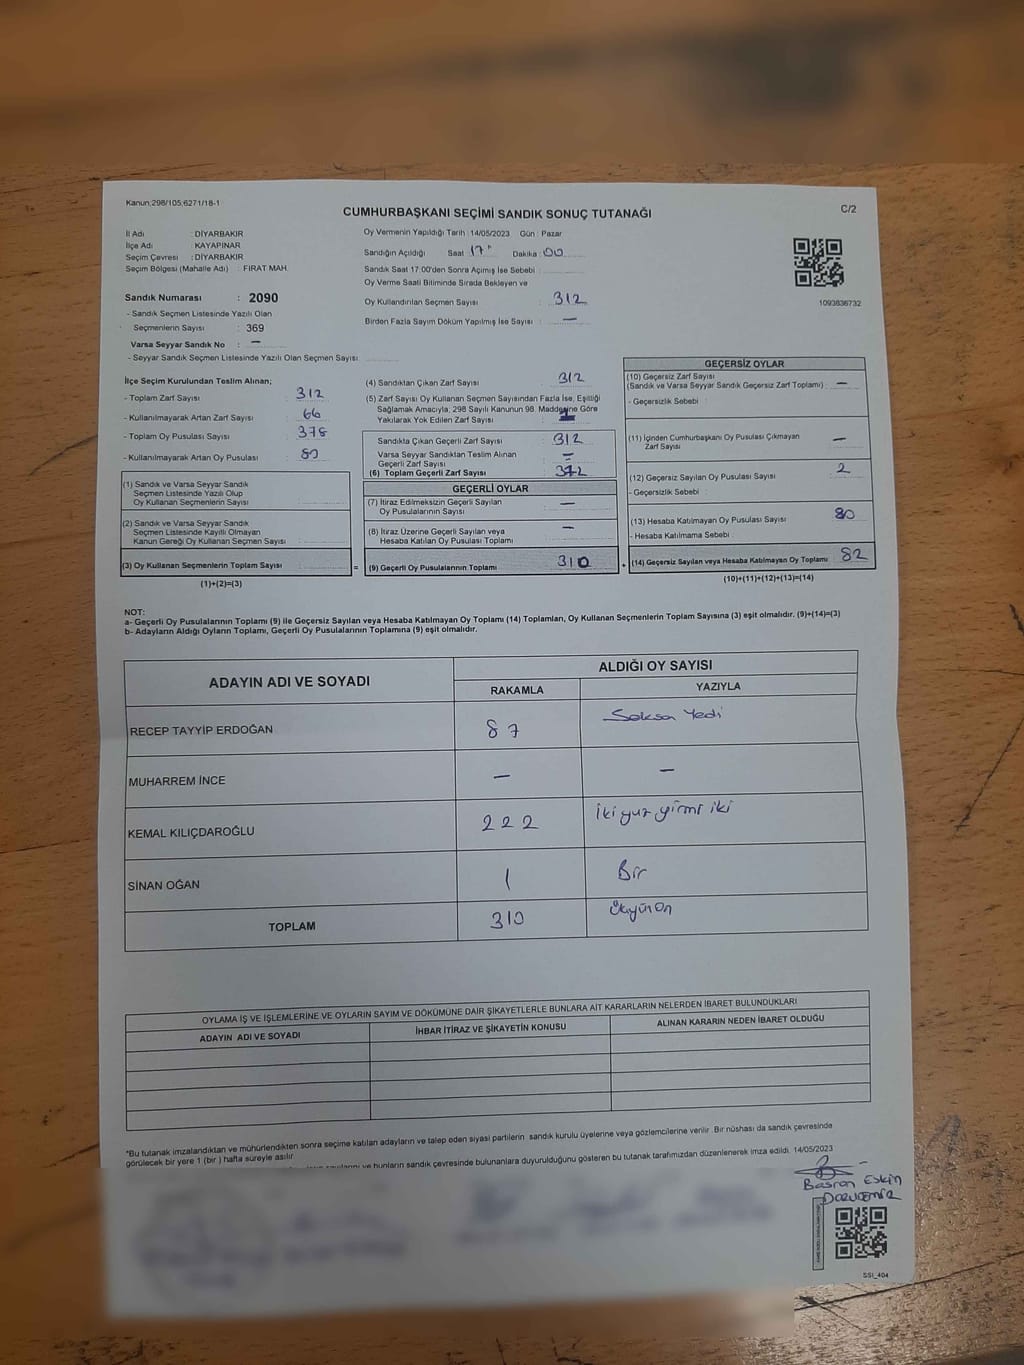 Kanun;298/105;6271/18-1
CUMHURBAŞKANI SEÇİMİ SANDIK SONUÇ TUTANAĞI
C/2
İl Adı : DİYARBAKIR
İlçe Adı : KAYAPINAR
Seçim Çevresi : DİYARBAKIR
Seçim Bölgesi (Mahalle Adı) : FIRAT MAH.
Sandık Numarası : 2090
- Sandık Seçmen Listesinde Yazılı Olan
Seçmenlerin Sayısı : 369
Varsa Seyyar Sandık No : —
- Seyyar Sandık Seçmen Listesinde Yazılı Olan Seçmen Sayısı:
Oy Vermenin Yapıldığı Tarih : 14/05/2023 Gün : Pazar
Sandığın Açıldığı Saat : 17 Dakika : 00
Sandık Saat 17:00'den Sonra Açılmış İse Sebebi :
Oy Verme Saati Bitiminde Sırada Bekleyen ve
Oy Kullandırılan Seçmen Sayısı : 312
Birden Fazla Sayım Döküm Yapılmış İse Sayısı : —
1093836732
İlçe Seçim Kurulundan Teslim Alınan;
- Toplam Zarf Sayısı : 312
- Kullanılmayarak Artan Zarf Sayısı : 66
- Toplam Oy Pusulası Sayısı : 378
- Kullanılmayarak Artan Oy Pusulası : 80
(1) Sandık ve Varsa Seyyar Sandık
Seçmen Listesinde Yazılı Olup
Oy Kullanan Seçmenlerin Sayısı :
(2) Sandık ve Varsa Seyyar Sandık
Seçmen Listesinde Kayıtlı Olmayan
Kanun Gereği Oy Kullanan Seçmen Sayısı :
(3) Oy Kullanan Seçmenlerin Toplam Sayısı :
(1)+(2)=(3)
(4) Sandıktan Çıkan Zarf Sayısı : 312
(5) Zarf Sayısı Oy Kullanan Seçmen Sayısından Fazla İse, Eşitliği
Sağlamak Amacıyla; 298 Sayılı Kanunun 98. Maddesine Göre
Yakılarak Yok Edilen Zarf Sayısı :
Sandıkta Çıkan Geçerli Zarf Sayısı : 312
Varsa Seyyar Sandıktan Teslim Alınan
Geçerli Zarf Sayısı : —
(6) Toplam Geçerli Zarf Sayısı : 312
GEÇERLİ OYLAR
(7) İtiraz Edilmeksizin Geçerli Sayılan
Oy Pusulalarının Sayısı : —
(8) İtiraz Üzerine Geçerli Sayılan veya
Hesaba Katılan Oy Pusulası Toplamı : —
(9) Geçerli Oy Pusulalarının Toplamı : 310
GEÇERSİZ OYLAR
(10) Geçersiz Zarf Sayısı
(Sandık ve Varsa Seyyar Sandık Geçersiz Zarf Toplamı) : —
- Geçersizlik Sebebi :
(11) İçinden Cumhurbaşkanı Oy Pusulası Çıkmayan
Zarf Sayısı : —
(12) Geçersiz Sayılan Oy Pusulası Sayısı : 2
- Geçersizlik Sebebi :
(13) Hesaba Katılmayan Oy Pusulası Sayısı : 80
- Hesaba Katılmama Sebebi :
(14) Geçersiz Sayılan veya Hesaba Katılmayan Oy Toplamı : 82
(10)+(11)+(12)+(13)=(14)
NOT:
a- Geçerli Oy Pusulalarının Toplamı (9) ile Geçersiz Sayılan veya Hesaba Katılmayan Oy Toplamı (14) Toplamları, Oy Kullanan Seçmenlerin Toplam Sayısına (3) eşit olmalıdır. (9)+(14)=(3)
b- Adayların Aldığı Oyların Toplamı, Geçerli Oy Pusulalarının Toplamına (9) eşit olmalıdır.
ADAYIN ADI VE SOYADI
ALDIĞI OY SAYISI
RAKAMLA YAZIYLA
RECEP TAYYİP ERDOĞAN 87 Seksen Yedi
MUHARREM İNCE — —
KEMAL KILIÇDAROĞLU 222 İki yuz yirmi iki
SİNAN OĞAN 1 Bir
TOPLAM 310
OYLAMA İŞ VE İŞLEMLERİNE VE OYLARIN SAYIM VE DÖKÜMÜNE DAİR ŞİKAYETLERLE BUNLARA AİT KARARLARIN NELERDEN İBARET BULUNDUKLARI
ADAYIN ADI VE SOYADI İHBAR İTİRAZ VE ŞİKAYETİN KONUSU ALINAN KARARIN NEDEN İBARET OLDUĞU
*Bu tutanak imzalandıktan ve mühürlendikten sonra seçime katılan adayların ve talep eden siyasi partilerin sandık kurulu üyelerine veya gözlemcilerine verilir. Bir nüshası da sandık çevresinde
görülecek bir yere 1 (bir) hafta süreyle asılır.
ve bunların sandık çevresinde bulunanlara duyurulduğunu gösteren bu tutanak tarafımızdan düzenlenerek imza edildi. 14/05/2023
Eskin
SSİ_404